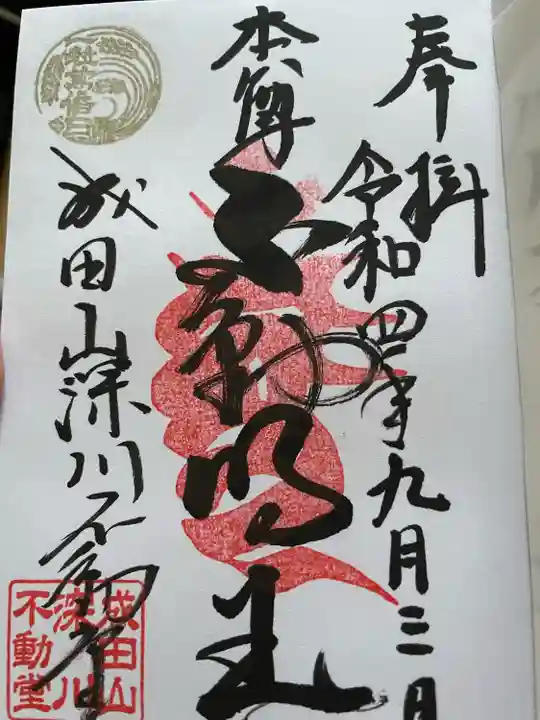 奉拝
令和四年九月三日
本尊
不動明王
成田山深川不動堂
成田山
深川
不動堂